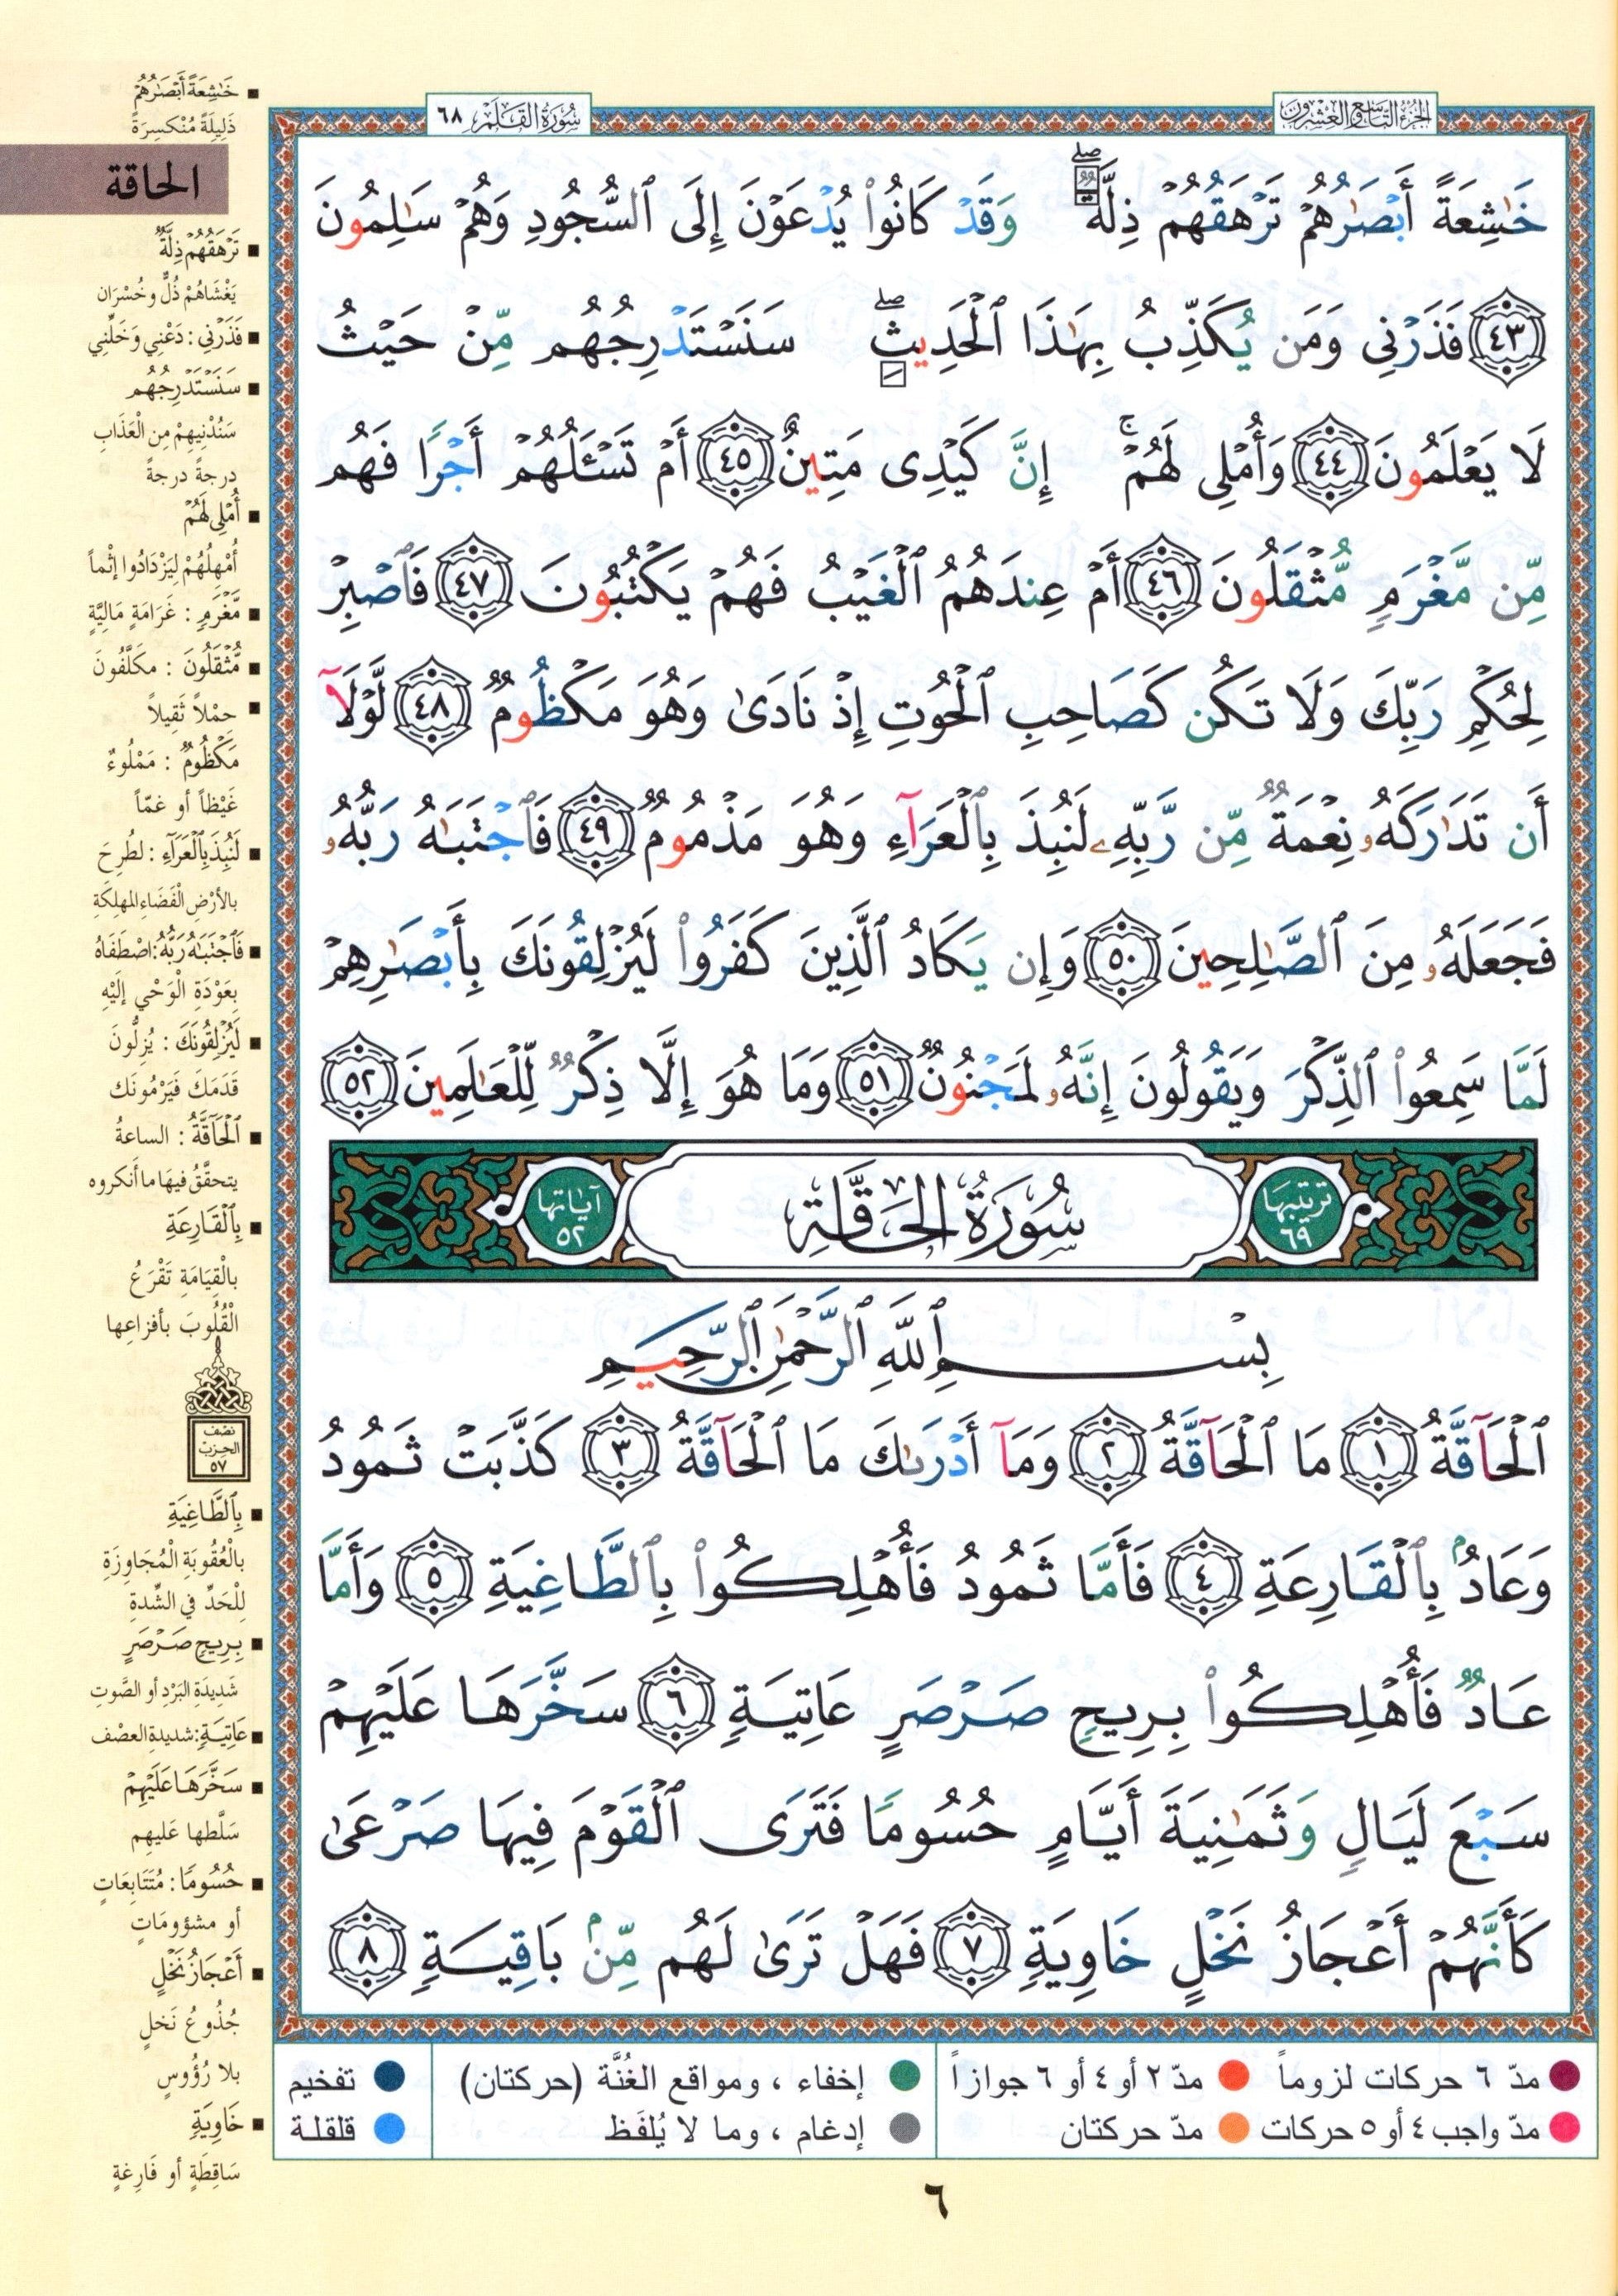 الجزء التاسع والعشرون
سورة القلم ٦٨
خَٰشِعَةً أَبْصَٰرُهُمْ تَرْهَقُهُمْ ذِلَّةٌۖ وَقَدْ كَانُوا۟ يُدْعَوْنَ إِلَى ٱلسُّجُودِ وَهُمْ سَٰلِمُونَ
٤٣ فَذَرْنِى وَمَن يُكَذِّبُ بِهَٰذَا ٱلْحَدِيثِۖ سَنَسْتَدْرِجُهُم مِّنْ حَيْثُ
لَا يَعْلَمُونَ ٤٤ وَأُمْلِى لَهُمْۚ إِنَّ كَيْدِى مَتِينٌ ٤٥ أَمْ تَسْـَٔلُهُمْ أَجْرًا فَهُم
مِّن مَّغْرَمٍ مُّثْقَلُونَ ٤٦ أَمْ عِندَهُمُ ٱلْغَيْبُ فَهُمْ يَكْتُبُونَ ٤٧ فَٱصْبِرْ
لِحُكْمِ رَبِّكَ وَلَا تَكُن كَصَاحِبِ ٱلْحُوتِ إِذْ نَادَىٰ وَهُوَ مَكْظُومٌ ٤٨ لَّوْلَآ
أَن تَدَٰرَكَهُۥ نِعْمَةٌ مِّن رَّبِّهِۦ لَنُبِذَ بِٱلْعَرَآءِ وَهُوَ مَذْمُومٌ ٤٩ فَٱجْتَبَٰهُ رَبُّهُۥ
فَجَعَلَهُۥ مِنَ ٱلصَّٰلِحِينَ ٥٠ وَإِن يَكَادُ ٱلَّذِينَ كَفَرُوا۟ لَيُزْلِقُونَكَ بِأَبْصَٰرِهِمْ
لَمَّا سَمِعُوا۟ ٱلذِّكْرَ وَيَقُولُونَ إِنَّهُۥ لَمَجْنُونٌ ٥١ وَمَا هُوَ إِلَّا ذِكْرٌ لِّلْعَٰلَمِينَ ٥٢
ترتيبها ٦٩ سُورَةُ الحَاقَّةِ آياتها ٥٢
بِسْمِ ٱللَّهِ ٱلرَّحْمَٰنِ ٱلرَّحِيمِ
ٱلْحَآقَّةُ ١ مَا ٱلْحَآقَّةُ ٢ وَمَآ أَدْرَىٰكَ مَا ٱلْحَآقَّةُ ٣ كَذَّبَتْ ثَمُودُ
وَعَادٌۢ بِٱلْقَارِعَةِ ٤ فَأَمَّا ثَمُودُ فَأُهْلِكُوا۟ بِٱلطَّاغِيَةِ ٥ وَأَمَّا
عَادٌ فَأُهْلِكُوا۟ بِرِيحٍ صَرْصَرٍ عَاتِيَةٍ ٦ سَخَّرَهَا عَلَيْهِمْ
سَبْعَ لَيَالٍ وَثَمَٰنِيَةَ أَيَّامٍ حُسُومًا فَتَرَى ٱلْقَوْمَ فِيهَا صَرْعَىٰ
كَأَنَّهُمْ أَعْجَازُ نَخْلٍ خَاوِيَةٍ ٧ فَهَلْ تَرَىٰ لَهُم مِّنۢ بَاقِيَةٍ ٨
خَٰشِعَةً أَبْصَٰرُهُمْ
ذَلِيلَةً مُنْكَسِرَةً
الحاقة
تَرْهَقُهُمْ ذِلَّةٌ
يَغْشَاهُمْ ذُلٌّ وخُسْرَان
فَذَرْنِي : دَعْنِي وَخَلِّنِي
سَنَسْتَدْرِجُهُم
سَنُدْنِيهِمْ مِن الْعَذَابِ
درجةً درجةً
أُمْلِي لَهُمْ
أُمْهِلُهُمْ لِيَزْدَادُوا إثْماً
مَّغْرَمٍ : غَرَامَةٍ مَالِيَّةٍ
مُّثْقَلُونَ : مكَلَّفُونَ
حِمْلاً ثَقِيلاً
مَكْظُومٌ : مَمْلُوءٌ
غَيْظاً أو غمّاً
لَنُبِذَ بِٱلْعَرَآءِ : لطُرِحَ
بالأرْضِ الْفَضَاءِ المهلِكَةِ
فَٱجْتَبَٰهُ رَبُّهُ : اصْطَفَاهُ
بِعَوْدَةِ الْوَحْي إلَيْهِ
لَيُزْلِقُونَكَ : يُزِلُّونَ
قَدَمَكَ فَيَرْمُونَك
ٱلْحَآقَّةُ : الساعةُ
يتحقَّقُ فيهَا ما أنكروه
بِٱلْقَارِعَةِ
بالْقِيَامَةِ تَقْرَعُ
الْقُلُوبَ بأفزاعِها
نصف
الحزب
٥٧
بِٱلطَّاغِيَةِ
بالْعُقُوبَةِ الْمُجَاوِزَةِ
لِلْحَدِّ في الشِّدةِ
بِرِيحٍ صَرْصَرٍ
شَدِيدَةِ البَرْدِ أو الصَّوتِ
عَاتِيَةٍ : شديدةِ العصْف
سَخَّرَهَا عَلَيْهِمْ
سَلَّطها عَليهِم
حُسُومًا : مُتَتَابِعَاتٍ
أو مشؤومَاتٍ
أَعْجَازُ نَخْلٍ
جُذُوعُ نَخلٍ
بلا رُؤُوسٍ
خَاوِيَةٍ
سَاقِطَةٍ أو فَارِغةٍ
مدّ ٦ حركات لزوماً مدّ ٢ أو ٤ أو ٦ جوازاً إخفاء ، ومواقع الغُنَّة (حركتان) تفخيم
مدّ واجب ٤ أو ٥ حركات مدّ حركتان إدغام ، وما لا يُلفَظ قلقلة
٦